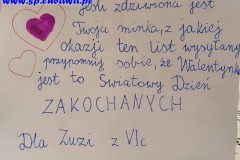 www.sp.cubuwu.pl
Jeśli zdziwiona jest
Twoja minka, z jakiej
okazji ten list wysyłany
przypomnij sobie, że Walentynki
jest to Światowy Dzień
ZAKOCHANYCH
Dla Zuzi z VIc